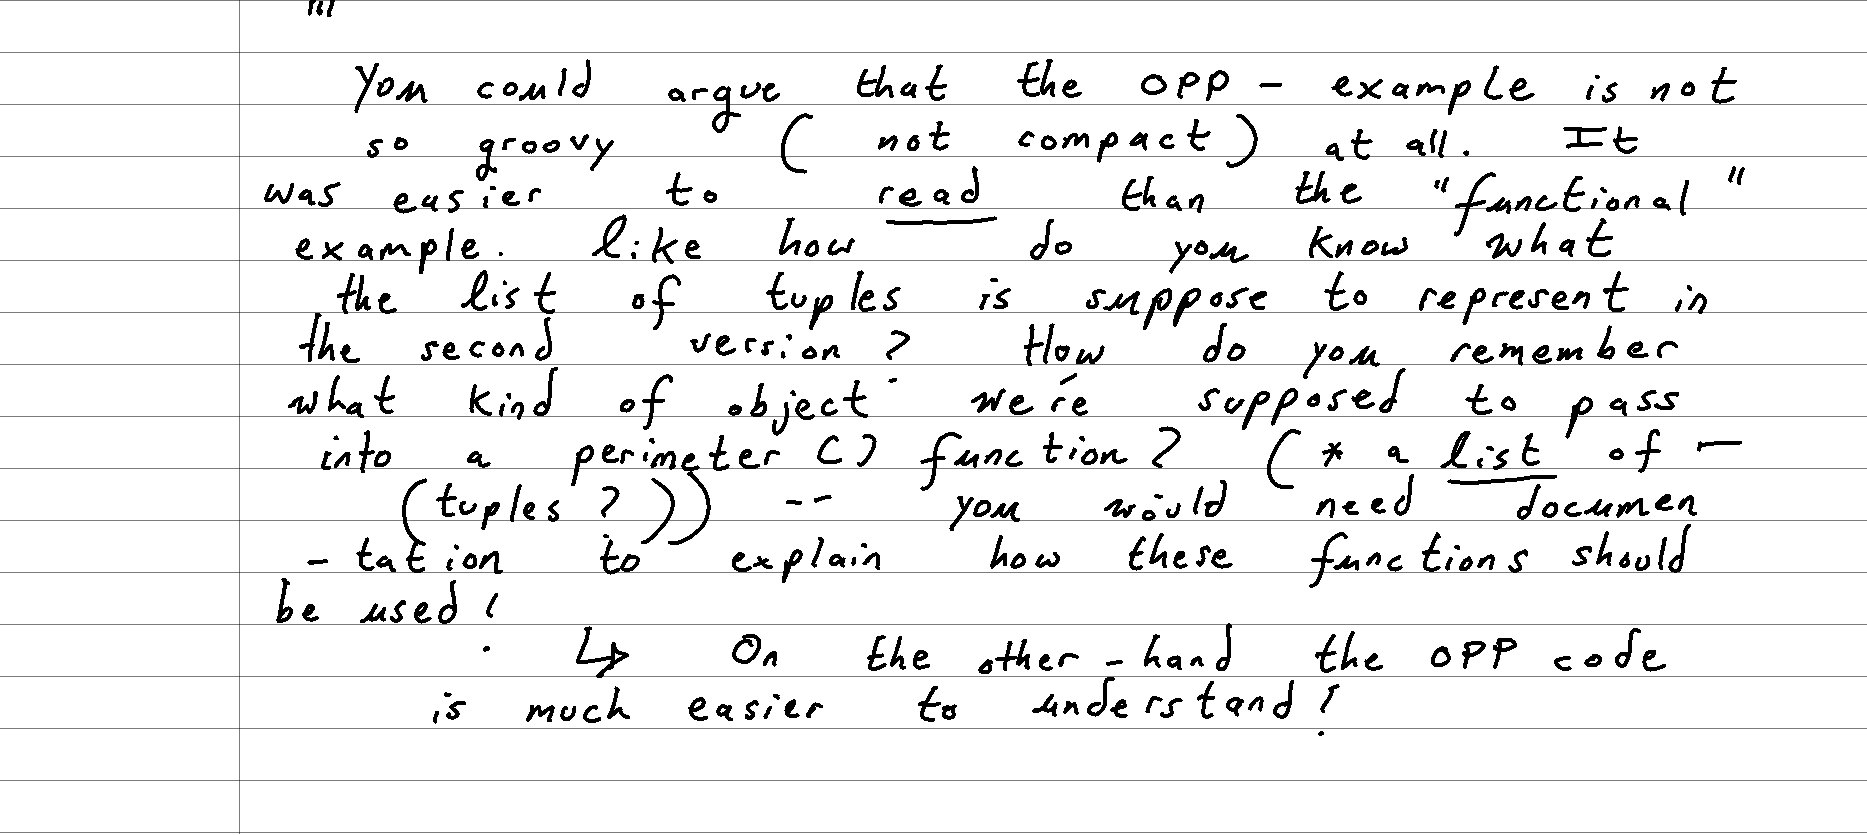 "
You could argue that the OPP - example is not
so groovy ( not compact ) at all. It
was easier to read than the "functional"
example. like how do you know what
the list of tuples is suppose to represent in
the second version ? How do you remember
what kind of object we're supposed to pass
into a perimeter () function ? ( * a list of -
(tuples ? )) -- you would need documen
- tation to explain how these functions should
be used !
↳ On the other - hand the OPP code
is much easier to understand !